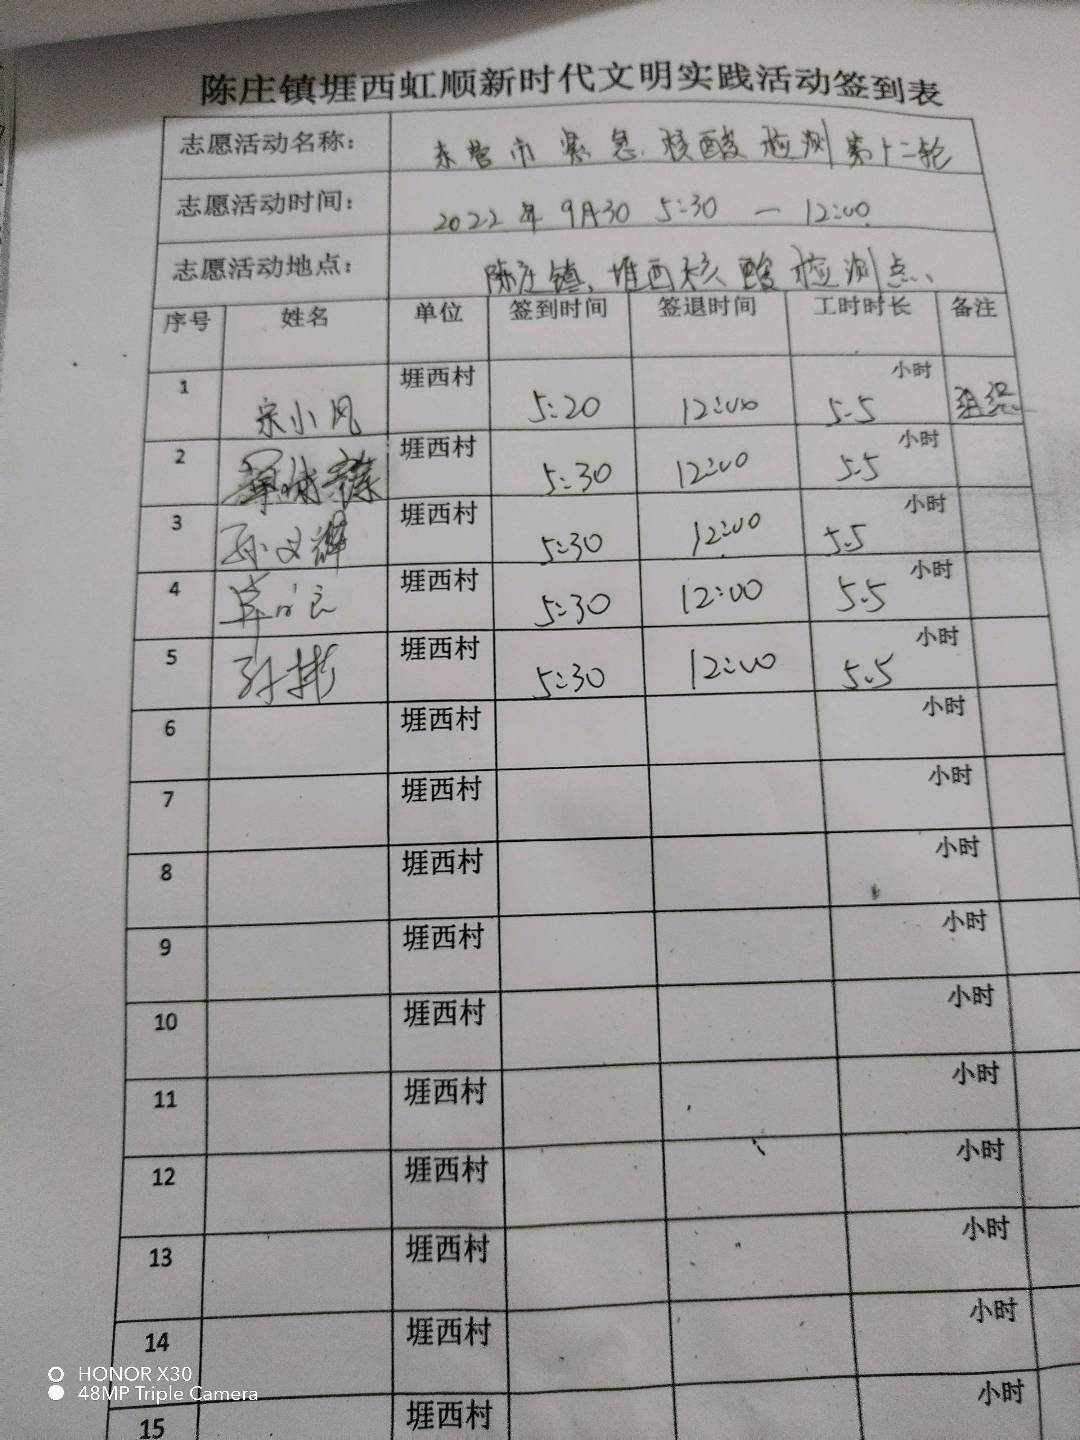 陈庄镇堐西虹顺新时代文明实践活动签到表
志愿活动名称: 东营市紧急核酸检测第十二轮
志愿活动时间: 2022年9月30 5:30 — 12:00
志愿活动地点: 陈庄镇、堐西核酸检测点、
序号 姓名 单位 签到时间 签退时间 工时时长 备注
1 宋小风 堐西村 5:20 12:00 5.5 小时
2 堐西村 5:30 12:00 5.5 小时
3 孙文辉 堐西村 5:30 12:00 5.5 小时
4 堐西村 5:30 12:00 5.5 小时
5 孙彬 堐西村 5:30 12:00 5.5 小时
6 堐西村 小时
7 堐西村 小时
8 堐西村 小时
9 堐西村 小时
10 堐西村 小时
11 堐西村 小时
12 堐西村 小时
13 堐西村 小时
14 堐西村 小时
15 堐西村 小时
HONOR X30
48MP Triple Camera